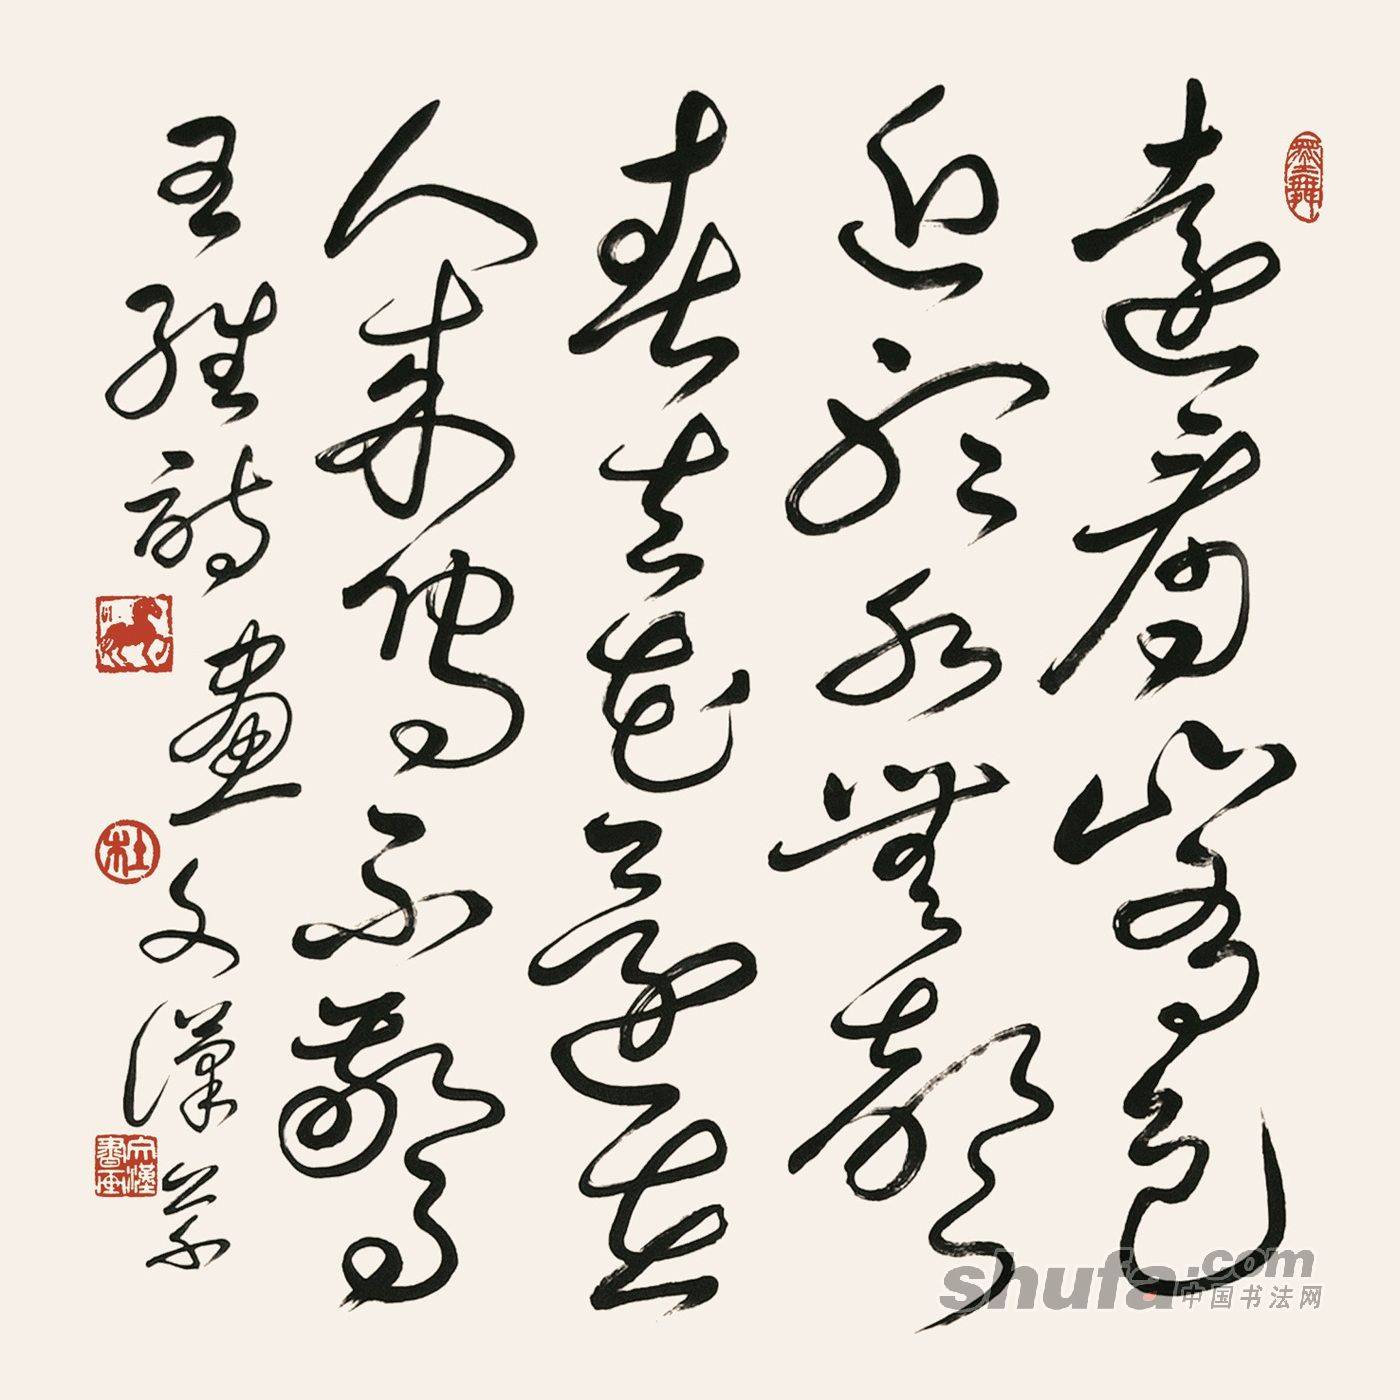 遠看山有色
近聽水無聲
春去花還在
人來鳥不驚
王維詩畫 文漢
墨舞
杜
文漢書畫
shufa.com
中国书法网